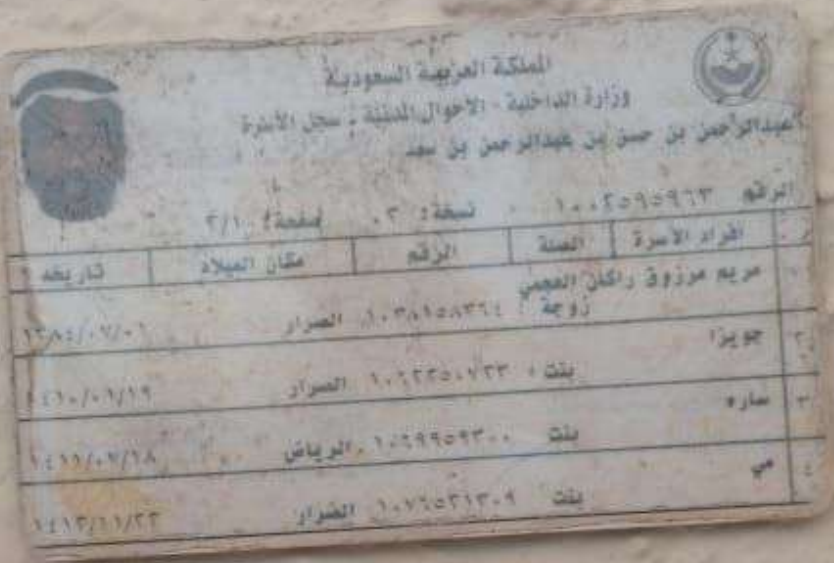 المملكة العربية السعودية
وزارة الداخلية - الأحوال المدنية - سجل الأسرة
عبدالرحمن بن حسن بن عبدالرحمن بن سعد
الرقم ١٠٠٢٥٩٥٩٦٣ نسخة: ٢٠ صفحة: ٢/١
م أفراد الأسرة الصلة الرقم مكان الميلاد تاريخه
١ مريم مرزوق راكان العجمي
زوجة ١٠٣٨١٥٨٣٦٤ الصرار ١٣٨٤/٠٧/٠١
٢ جويزا
بنت ١٠٦٢٢٥٠٧٢٣ الصرار ١٤١٠/٠١/١٩
٣ ساره
بنت ١٠٦٩٩٥٩٣٠٠ الرياض ١٤١١/٠٧/١٨
٤ مي
بنت ١٠٧٦٥٣١٣٠٩ الصرار ١٤١٣/١١/٢٣